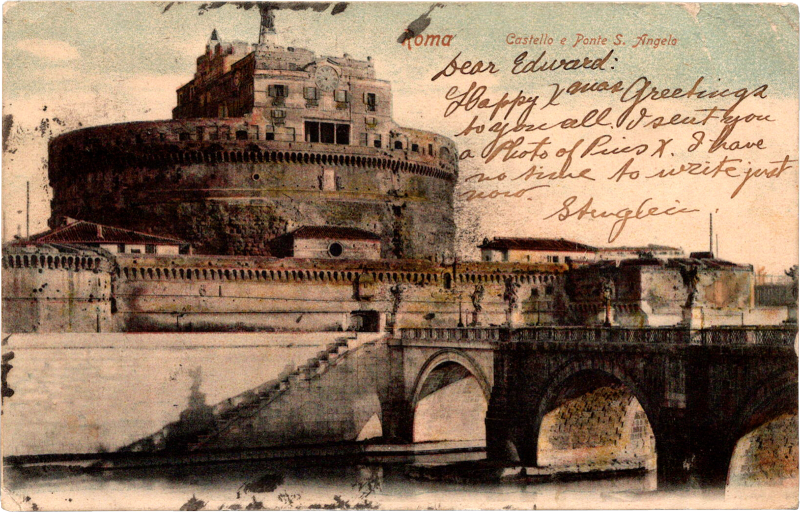 Roma
Castello e Ponte S. Angelo
Dear Edward:
Happy Xmas Greetings
to you all. I sent you
a Photo of Pius X. I have
no time to write just
now.